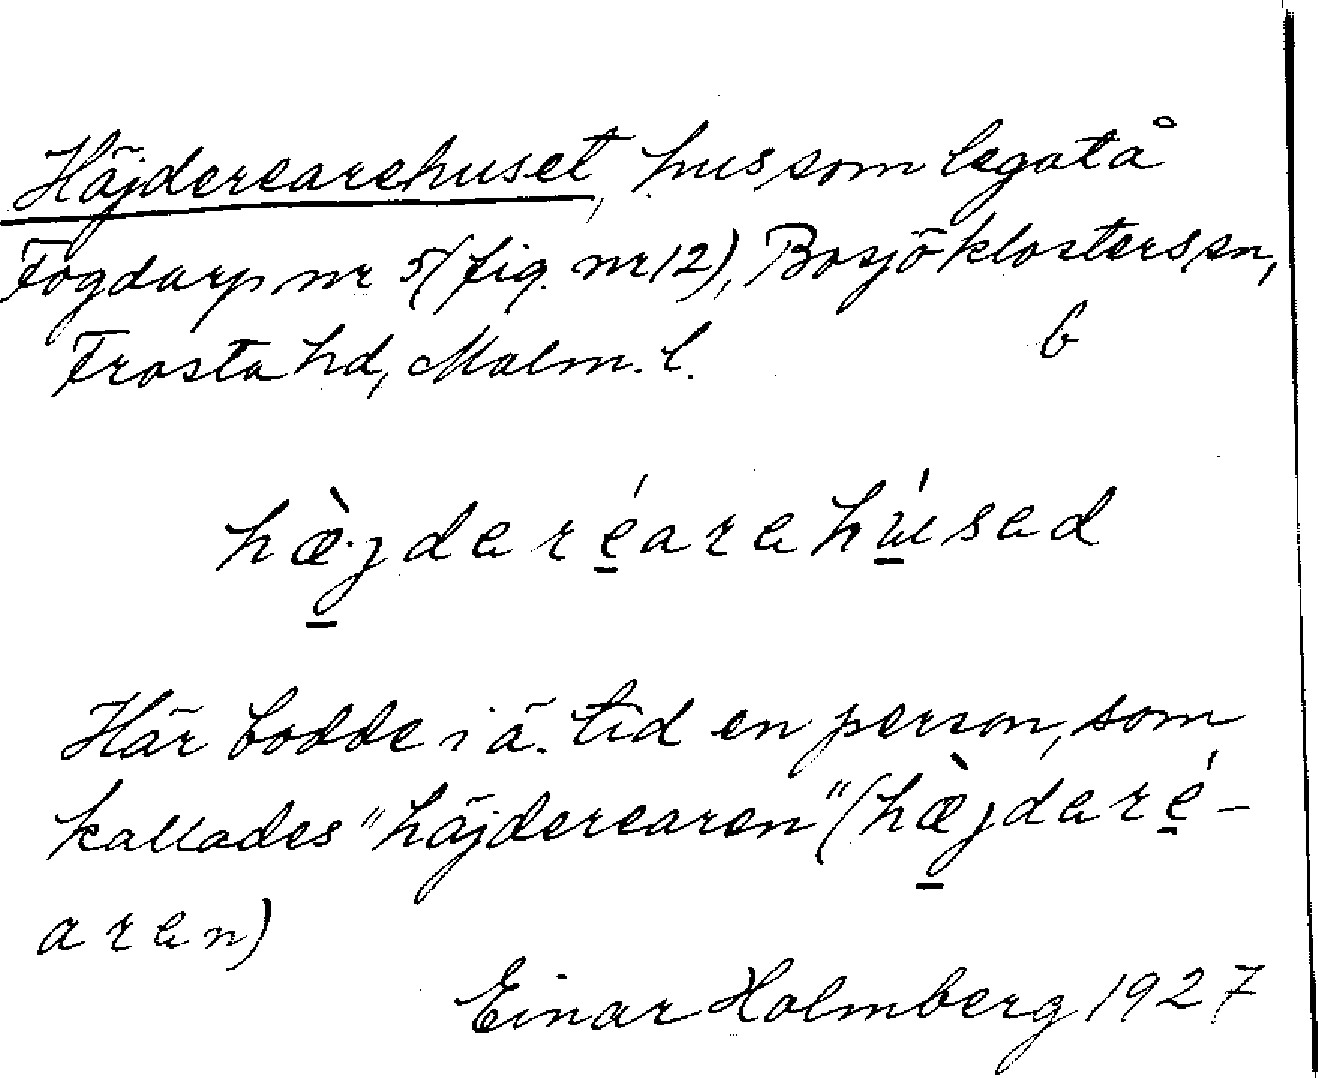 Häjderearehuset, hus som legat å
Fogdarp nr 5 (fig. nr 12), Bosjöklosters sn,
Frosta hd, Malm. l. b
hæ̀jderéarehúsed
Här bodde i ä. tid en person, som
kallades "häjderearen" (hæ̀jderé-
aren)
Einar Holmberg 1927